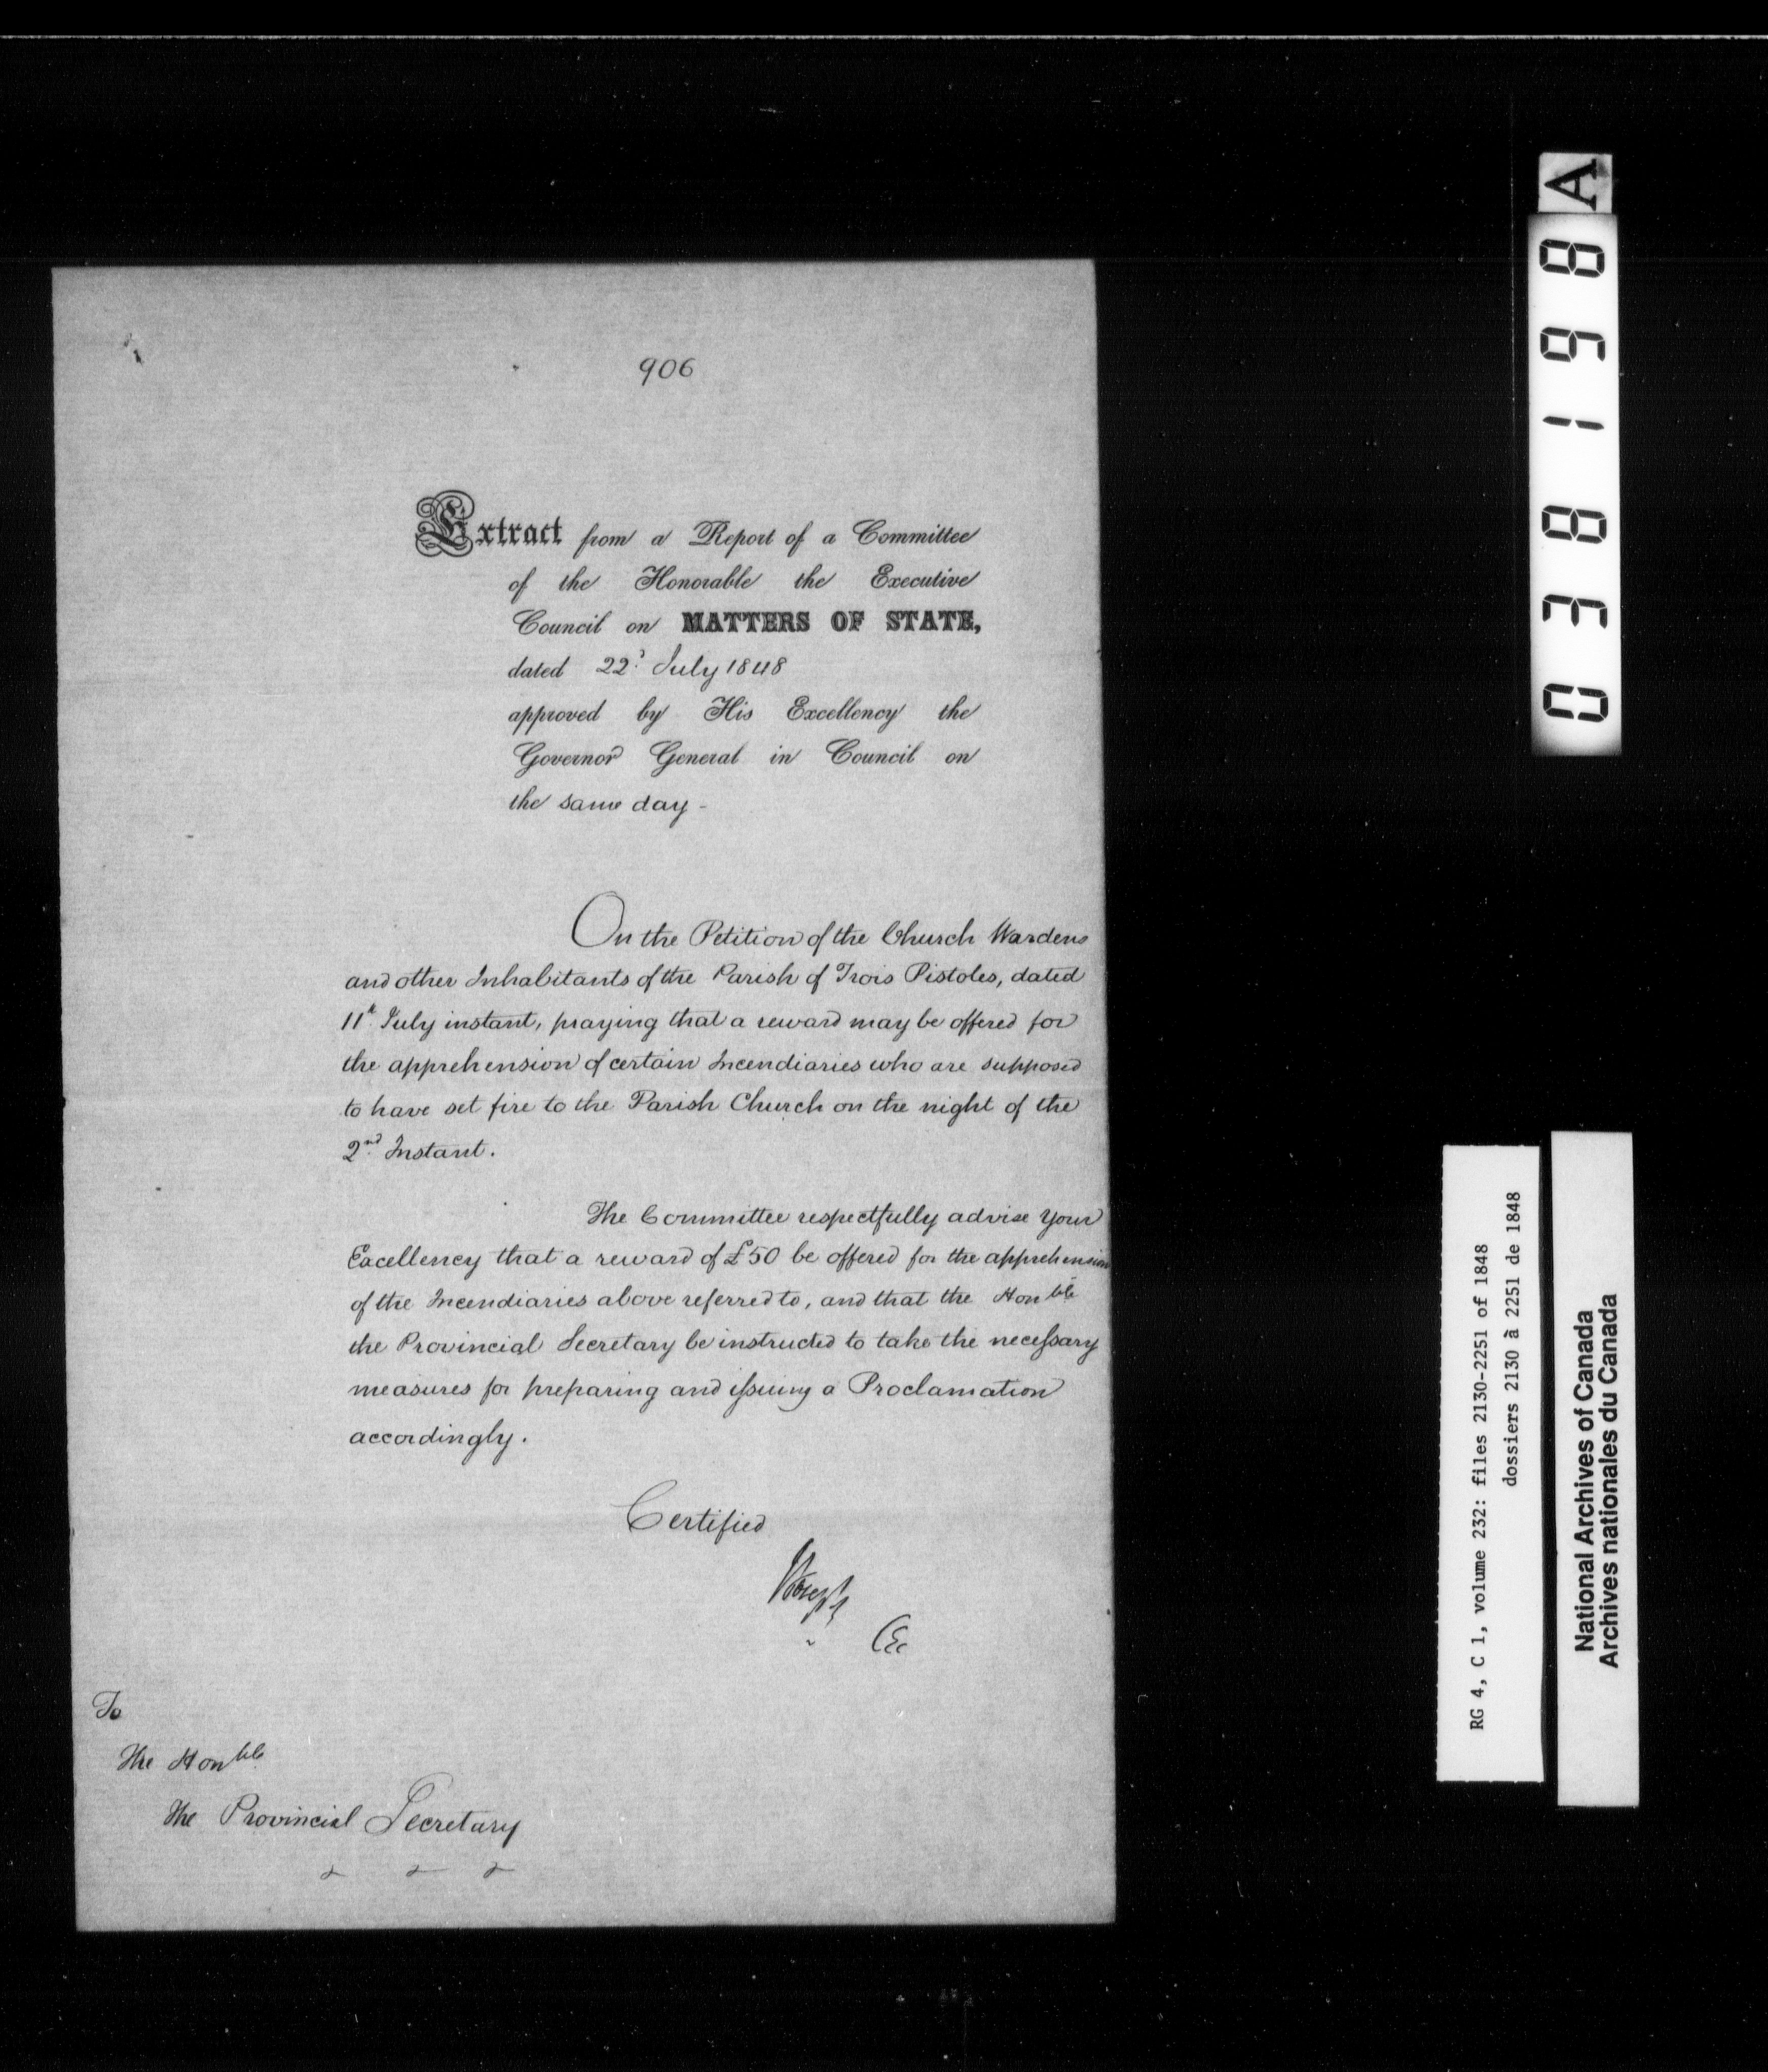 906
Extract from a Report of a Committee
of the Honorable the Executive
Council on MATTERS OF STATE,
dated 22d July 1848
approved by His Excellency the
Governor General in Council on
the same day -
On the Petition of the Church Wardens
and other Inhabitants of the Parish of Trois Pistoles, dated
11th July instant, praying that a reward may be offered for
the apprehension of certain Incendiaries who are supposed
to have set fire to the Parish Church on the night of the
2nd Instant.
The Committee respectfully advise Your
Excellency that a reward of £50 be offered for the apprehension
of the Incendiaries above referred to, and that the Honble
the Provincial Secretary be instructed to take the necessary
measures for preparing and issuing a Proclamation
accordingly.
Certified
To
The Honble
the Provincial Secretary
038198 A
RG 4, C 1, volume 232: files 2130-2251 of 1848
dossiers 2130 à 2251 de 1848
National Archives of Canada
Archives nationales du Canada